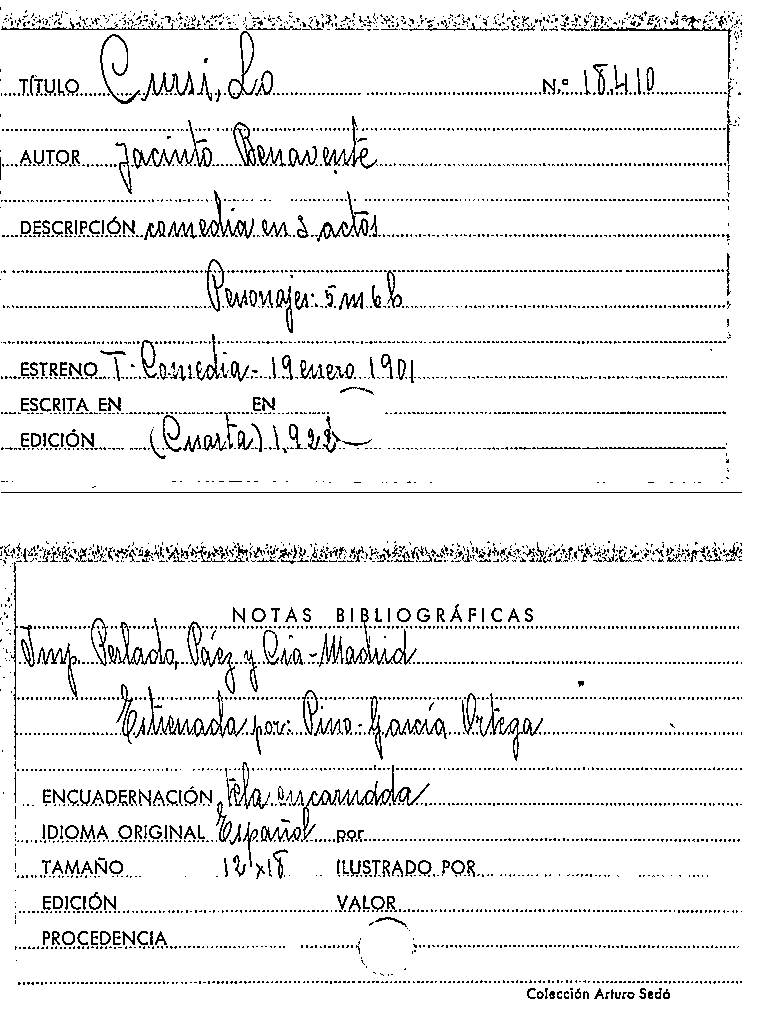 TÍTULO Cursi, Lo N.º 18.410
AUTOR Jacinto Benavente
DESCRIPCIÓN comedia en 3 actos
Personajes: 5 m 6 h
ESTRENO T. Comedia - 19 enero 1901
ESCRITA EN EN
EDICIÓN (Cuarta) 1.922
NOTAS BIBLIOGRÁFICAS
Imp. Perlado, Páez y Cía - Madrid
Estrenada por: Pino - García Ortega
ENCUADERNACIÓN tela encarnada
IDIOMA ORIGINAL Español por
TAMAÑO 12 x 18 ILUSTRADO POR
EDICIÓN VALOR
PROCEDENCIA
Colección Arturo Sedó